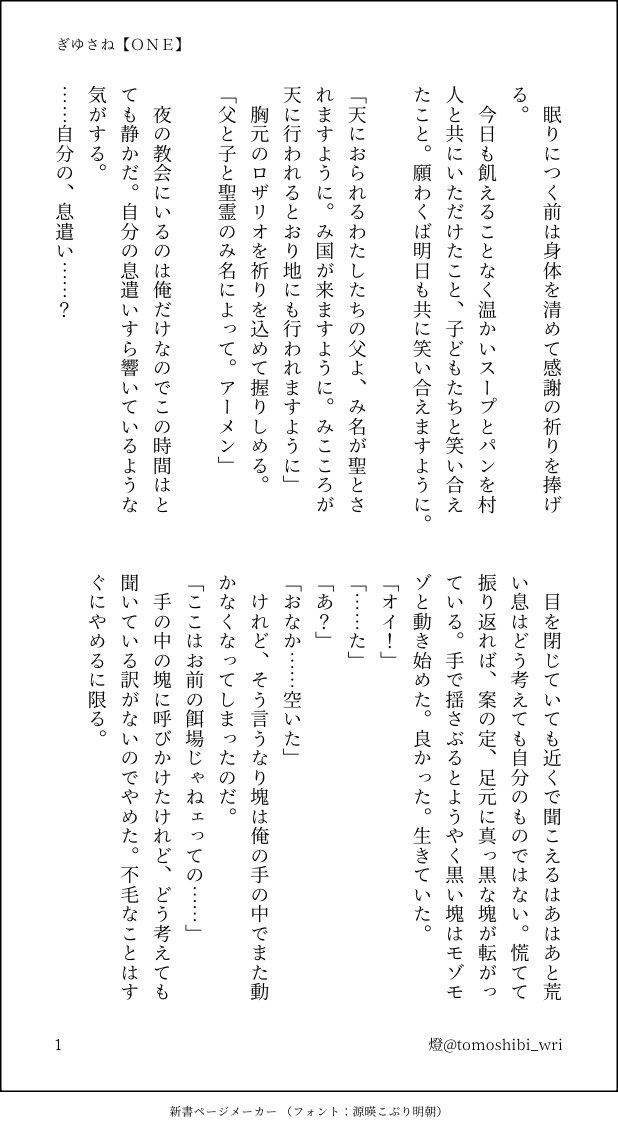 ぎゆさね【ＯＮＥ】
　眠りにつく前は身体を清めて感謝の祈りを捧げ
る。
　今日も飢えることなく温かいスープとパンを村
人と共にいただけたこと、子どもたちと笑い合え
たこと。願わくば明日も共に笑い合えますように。
「天におられるわたしたちの父よ、み名が聖とさ
れますように。み国が来ますように。みこころが
天に行われるとおり地にも行われますように」
　胸元のロザリオを祈りを込めて握りしめる。
「父と子と聖霊のみ名によって。アーメン」
　夜の教会にいるのは俺だけなのでこの時間はと
ても静かだ。自分の息遣いすら響いているような
気がする。
……自分の、息遣い……？
　目を閉じていても近くで聞こえるはあはあと荒
い息はどう考えても自分のものではない。慌てて
振り返れば、案の定、足元に真っ黒な塊が転がっ
ている。手で揺さぶるとようやく黒い塊はモゾモ
ゾと動き始めた。良かった。生きていた。
「オィ！」
「……た」
「あ？」
「おなか……空いた」
　けれど、そう言うなり塊は俺の手の中でまた動
かなくなってしまったのだ。
「ここはお前の餌場じゃねェっての……」
　手の中の塊に呼びかけたけれど、どう考えても
聞いている訳がないのでやめた。不毛なことはす
ぐにやめるに限る。
1
燈@tomoshibi_wri
新書ページメーカー（フォント：源暎こぶり明朝）